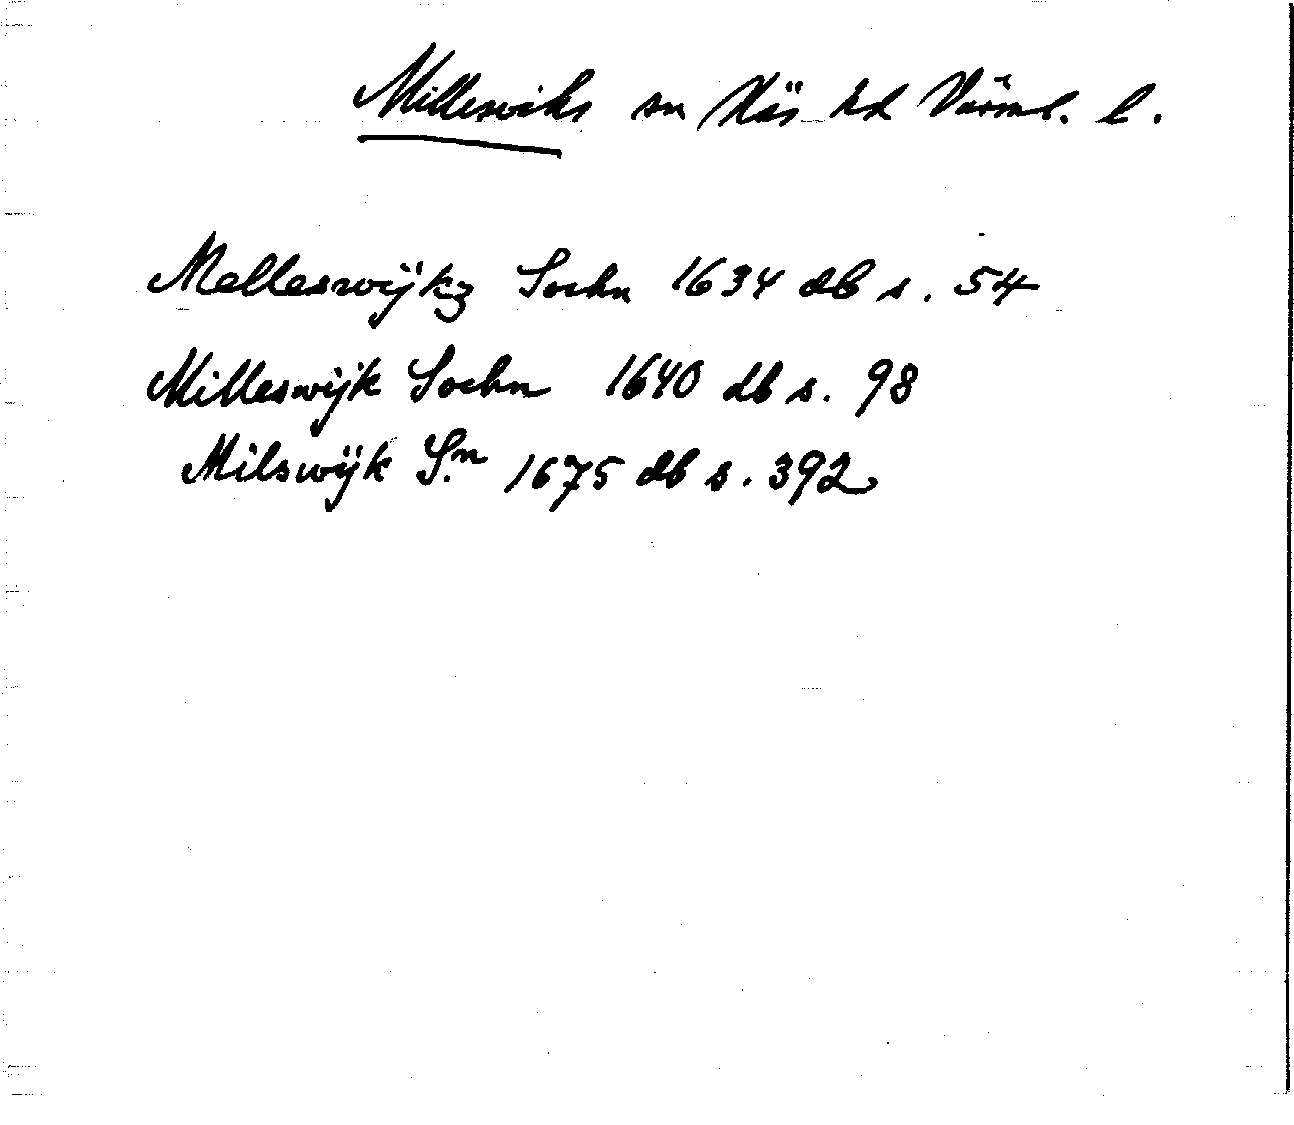 Millesviks sn Näs hd Värml. l.
Melleswijkz Sochn 1634 db s. 54
Milleswijk Sochn 1640 db s. 98
Milswijk S.n 1675 db s. 392